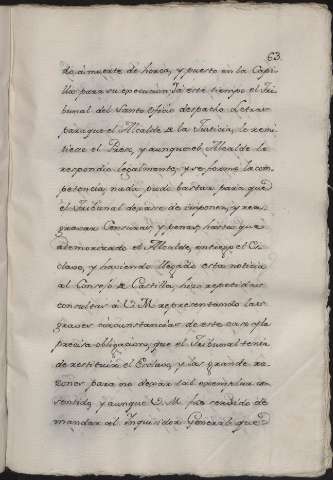 63.
do à muerte de horca, y puesto en la Capi-
lla para su execucion, à este tiempo el Tri-
bunal del Santo Oficio despacho Letras
para que el Alcalde de la Justicia, le remi-
tiese el Preso, y aunque el Alcalde le
respondio legalmente, y se formò la com-
petencia, nada pudo bastar para que
el Tribunal dejase de imponer, y rea-
gravar Censuras, y penas, hasta que
atemorizado el Alcalde, entregò el Es-
clavo, y haviendo llegado esta noticia
al Consejo de Castilla, hizo repetidas
consultas à V.M. representando las
graves circunstancias de este caso, y la
precisa obligacion, que el Tribunal tenia
de restituir el Esclavo, y las grandes ra-
zones para no dejar tal exemplar con-
sentido, y aunque V.M. fue servido de
mandar al Inquisidor General que